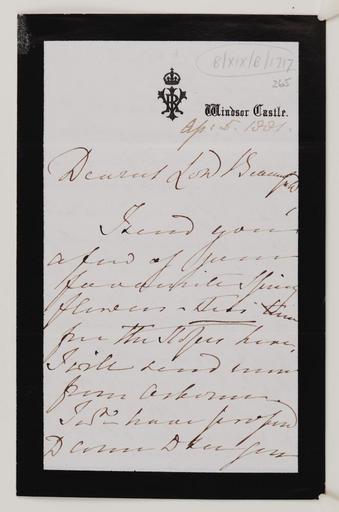 B/XIX/B/1717
265
Windsor Castle.
Ap: 5. 1881.
Dearest Ld Beaconsfield
I send you
a few of your
favourite Spring
flowers – this time
fm the Slopes here,
I will send some
from Osborne.
I wd have proposed